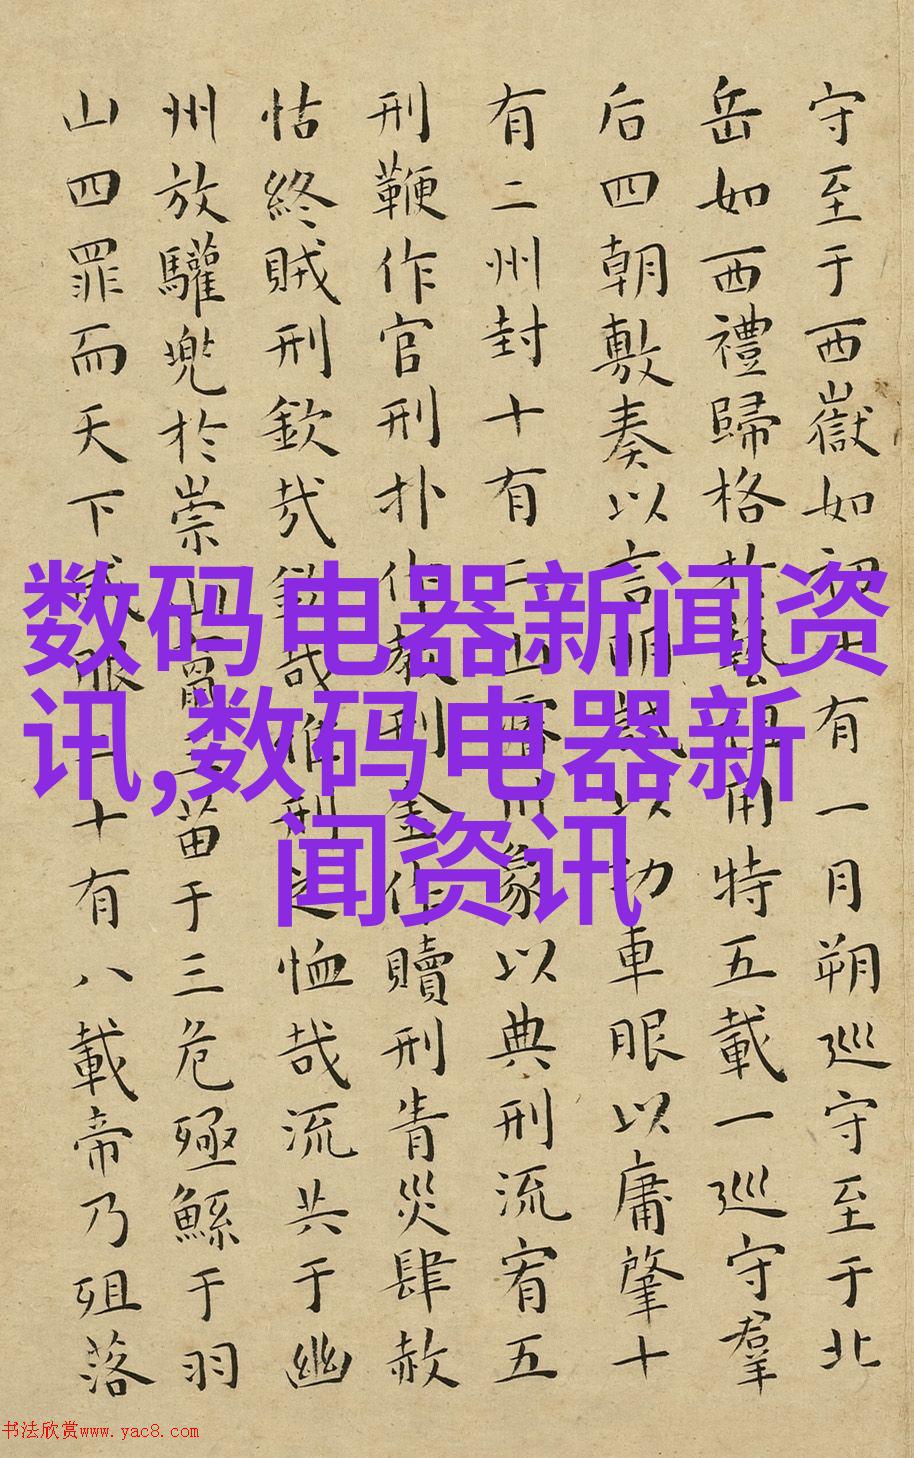 守至于西嶽如初十有一月朔巡守至于北
岳如西禮歸格於藝祖用特五載一巡守羣
后四朝敷奏以言明試以功車服以庸肇十
有二州封十有二山濬川象以典刑流宥五
刑鞭作官刑扑作教刑金作贖刑眚災肆赦
怙終賊刑欽哉欽哉惟刑之恤哉流共于幽
州放驩兜於崇山竄三苗于三危殛鯀于羽
山四罪而天下咸服二十有八載帝乃殂落
数码电器新闻资
讯,数码电器新
闻资讯
书法欣赏www.yac8.com